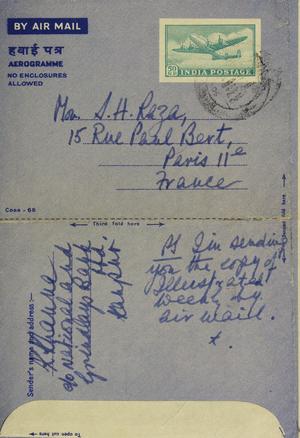 BY AIR MAIL
हवाई पत्र
AEROGRAMME
NO ENCLOSURES
ALLOWED
INDIA POSTAGE
Mon. S.H. Raza,
15 Rue Paul Bert,
Paris 11e
France
Third fold here
Sender's name and address :—
K Khanna
c/o National and
Grindlays Bank
Ltd.
Kanpur.
PS I'm sending
you the copy of
Illustrated
Weekly by
air mail.
To open cut here